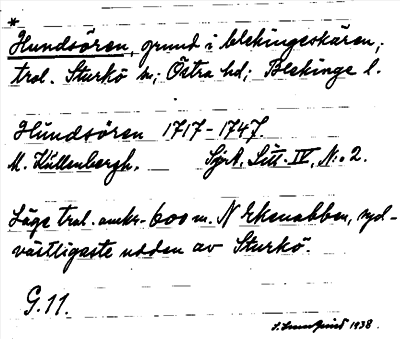 *
Hundsören, grund i blekingeskären;
trol. Sturkö sn; Östra hd; Blekinge l.
Hundsören 1717-1747.
M. Kullenbergh. SjA, Litt. IV, No 2.
Läge trol. omkr. 600 m. N Ekenabben, syd-
västligaste udden av Sturkö.
G.11.
1938.